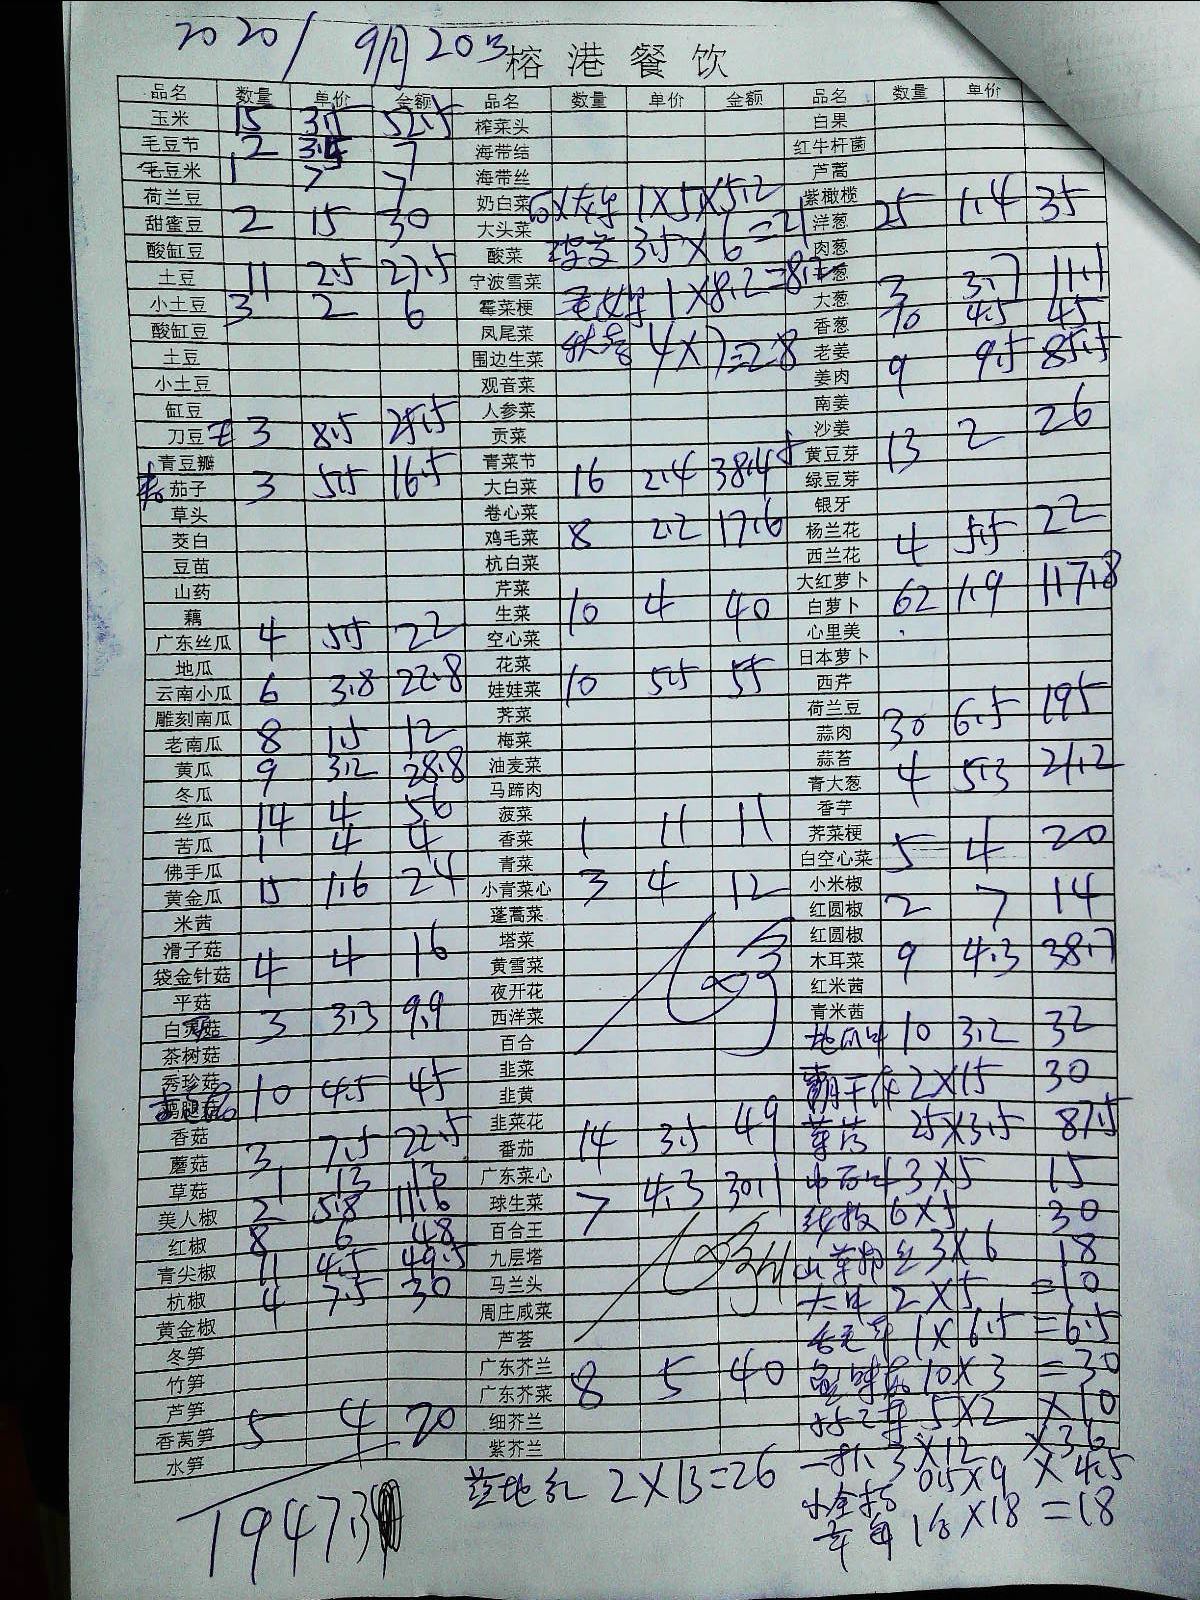 2020/9月20日 榕港餐饮
品名 数量 单价 金额 品名 数量 单价 金额 品名 数量 单价
玉米 15 3.5 52.5 榨菜头 白果
毛豆节 2 3.5 7 海带结 红牛杆菌
毛豆米 1 7 7 海带丝 芦蒿
荷兰豆 奶白菜 1X5 X5.2 紫橄榄 25 1.4 35
甜蜜豆 2 15 30 大头菜 3.5X6=21 洋葱
酸缸豆 酸菜 肉葱
土豆 11 2.5 27.5 宁波雪菜 1X8.2=8.2 葱 3 3.7 11.1
小土豆 3 2 6 霉菜梗 大葱 10 4.5 45
酸缸豆 凤尾菜 4X7=28 香葱
土豆 围边生菜 老姜 9 9.5 85.5
小土豆 观音菜 姜肉
缸豆 人参菜 南姜
刀豆 3 8.5 25.5 贡菜 沙姜 13 2 26
青豆瓣 青菜节 黄豆芽
茄子 3 5.5 16.5 大白菜 16 2.4 38.4 绿豆芽
草头 卷心菜 银牙
茭白 鸡毛菜 8 2.2 17.6 杨兰花 4 5.5 22
豆苗 杭白菜 西兰花
山药 芹菜 大红萝卜
藕 生菜 10 4 40 白萝卜 62 1.9 117.8
广东丝瓜 4 5.5 22 空心菜 心里美
地瓜 花菜 日本萝卜
云南小瓜 6 3.8 22.8 娃娃菜 10 5.5 55 西芹
雕刻南瓜 荠菜 荷兰豆
老南瓜 8 1.5 12 梅菜 蒜肉 30 6.5 195
黄瓜 9 3.2 28.8 油麦菜 蒜苔
冬瓜 马蹄肉 青大葱 4 5.3 21.2
丝瓜 14 4 56 菠菜 香芋
苦瓜 1 4 4 香菜 1 11 11 荠菜梗
佛手瓜 青菜 白空心菜 5 4 20
黄金瓜 15 1.6 24 小青菜心 3 4 12 小米椒
米茜 蓬蒿菜 红圆椒 2 7 14
滑子菇 塔菜 红圆椒
袋金针菇 4 4 16 黄雪菜 木耳菜 9 4.3 38.7
平菇 夜开花 红米茜
白灵菇 3 3.3 9.9 西洋菜 青米茜
茶树菇 百合 10 3.2 32
秀珍菇 韭菜 2X15 30
鸡腿菇 10 4.5 45 韭黄
香菇 韭菜花 25X3.5 87.5
蘑菇 3 7.5 22.5 番茄 14 3.5 49
草菇 1 13 13 广东菜心 3X5 15
美人椒 2 5.8 11.6 球生菜 7 4.3 30.1 6X5 30
红椒 8 6 48 百合王
青尖椒 11 4.5 49.5 九层塔 3X6 18
杭椒 4 7.5 30 马兰头 2X5 =10
黄金椒 周庄咸菜
冬笋 芦荟 1X6.5 =6.5
竹笋 广东芥兰 8 5 40 10X3 =30
芦笋 广东芥菜
香莴笋 5 4 20 细芥兰 5X2 X10
水笋 紫芥兰 3X12 X36
2X13=26 0.5X9 X4.5
1947.3 X18 =18